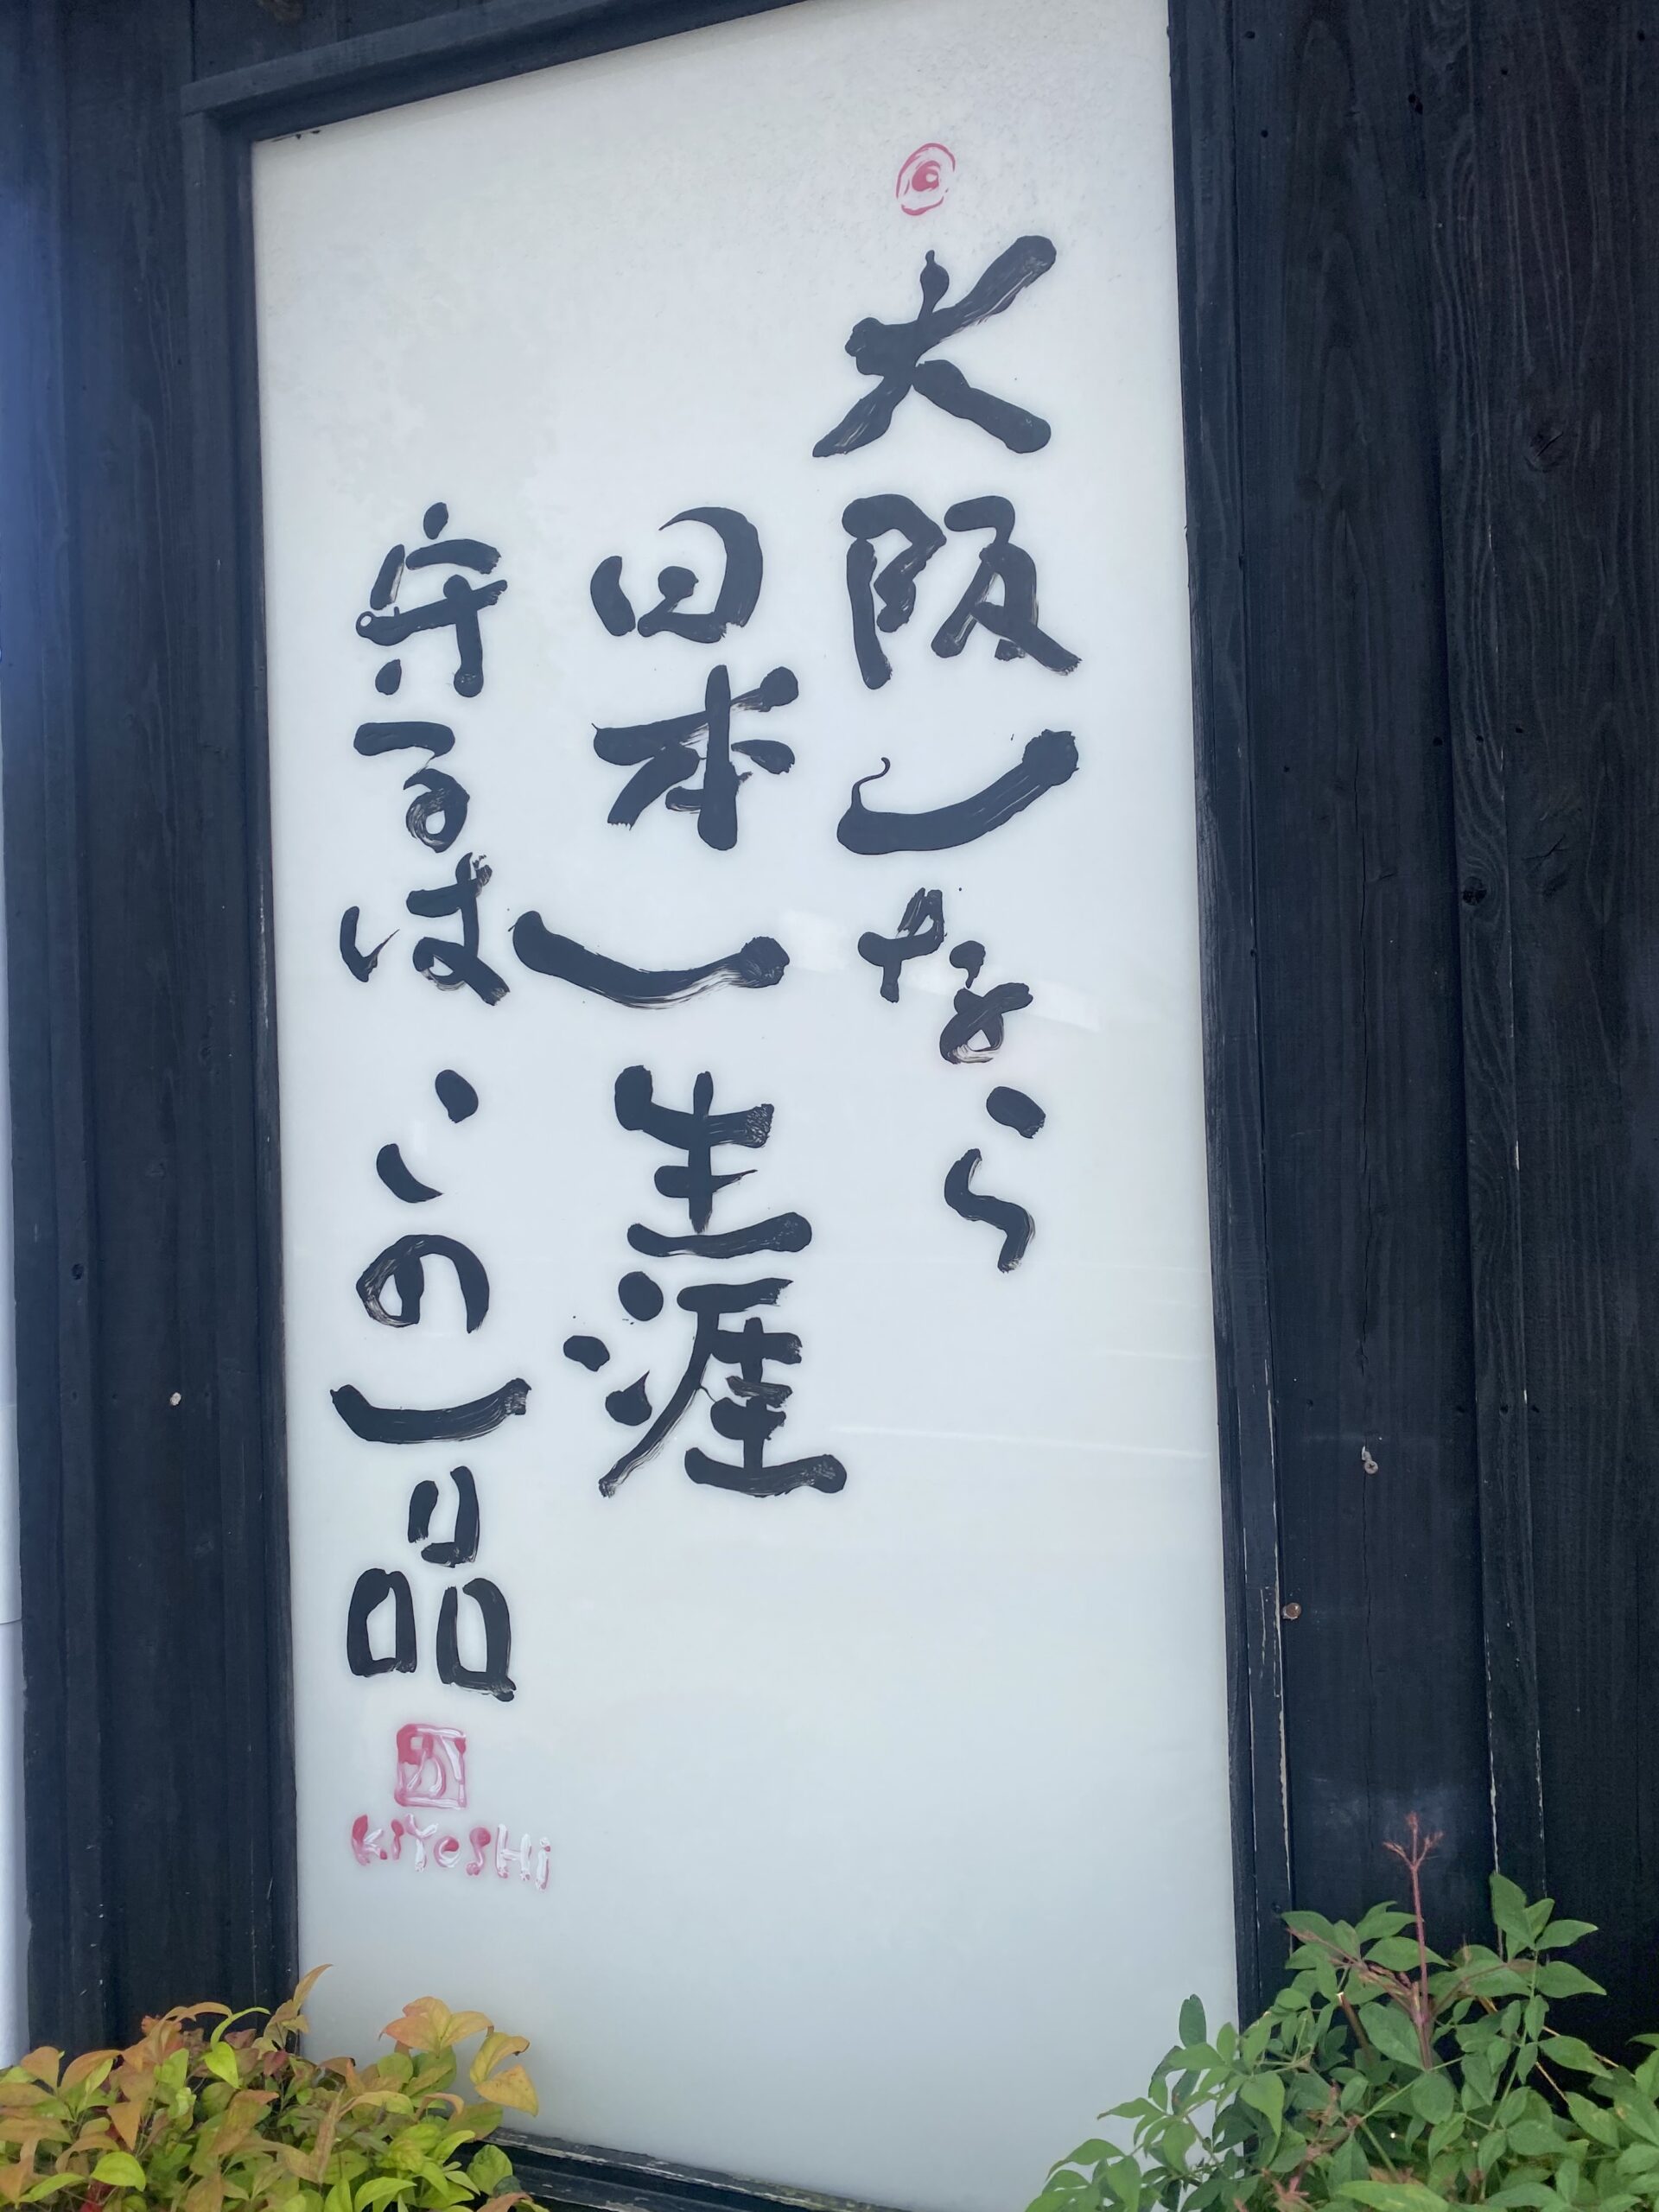 大阪一なら
日本一生涯
守るはこの一品
KiYoSHi